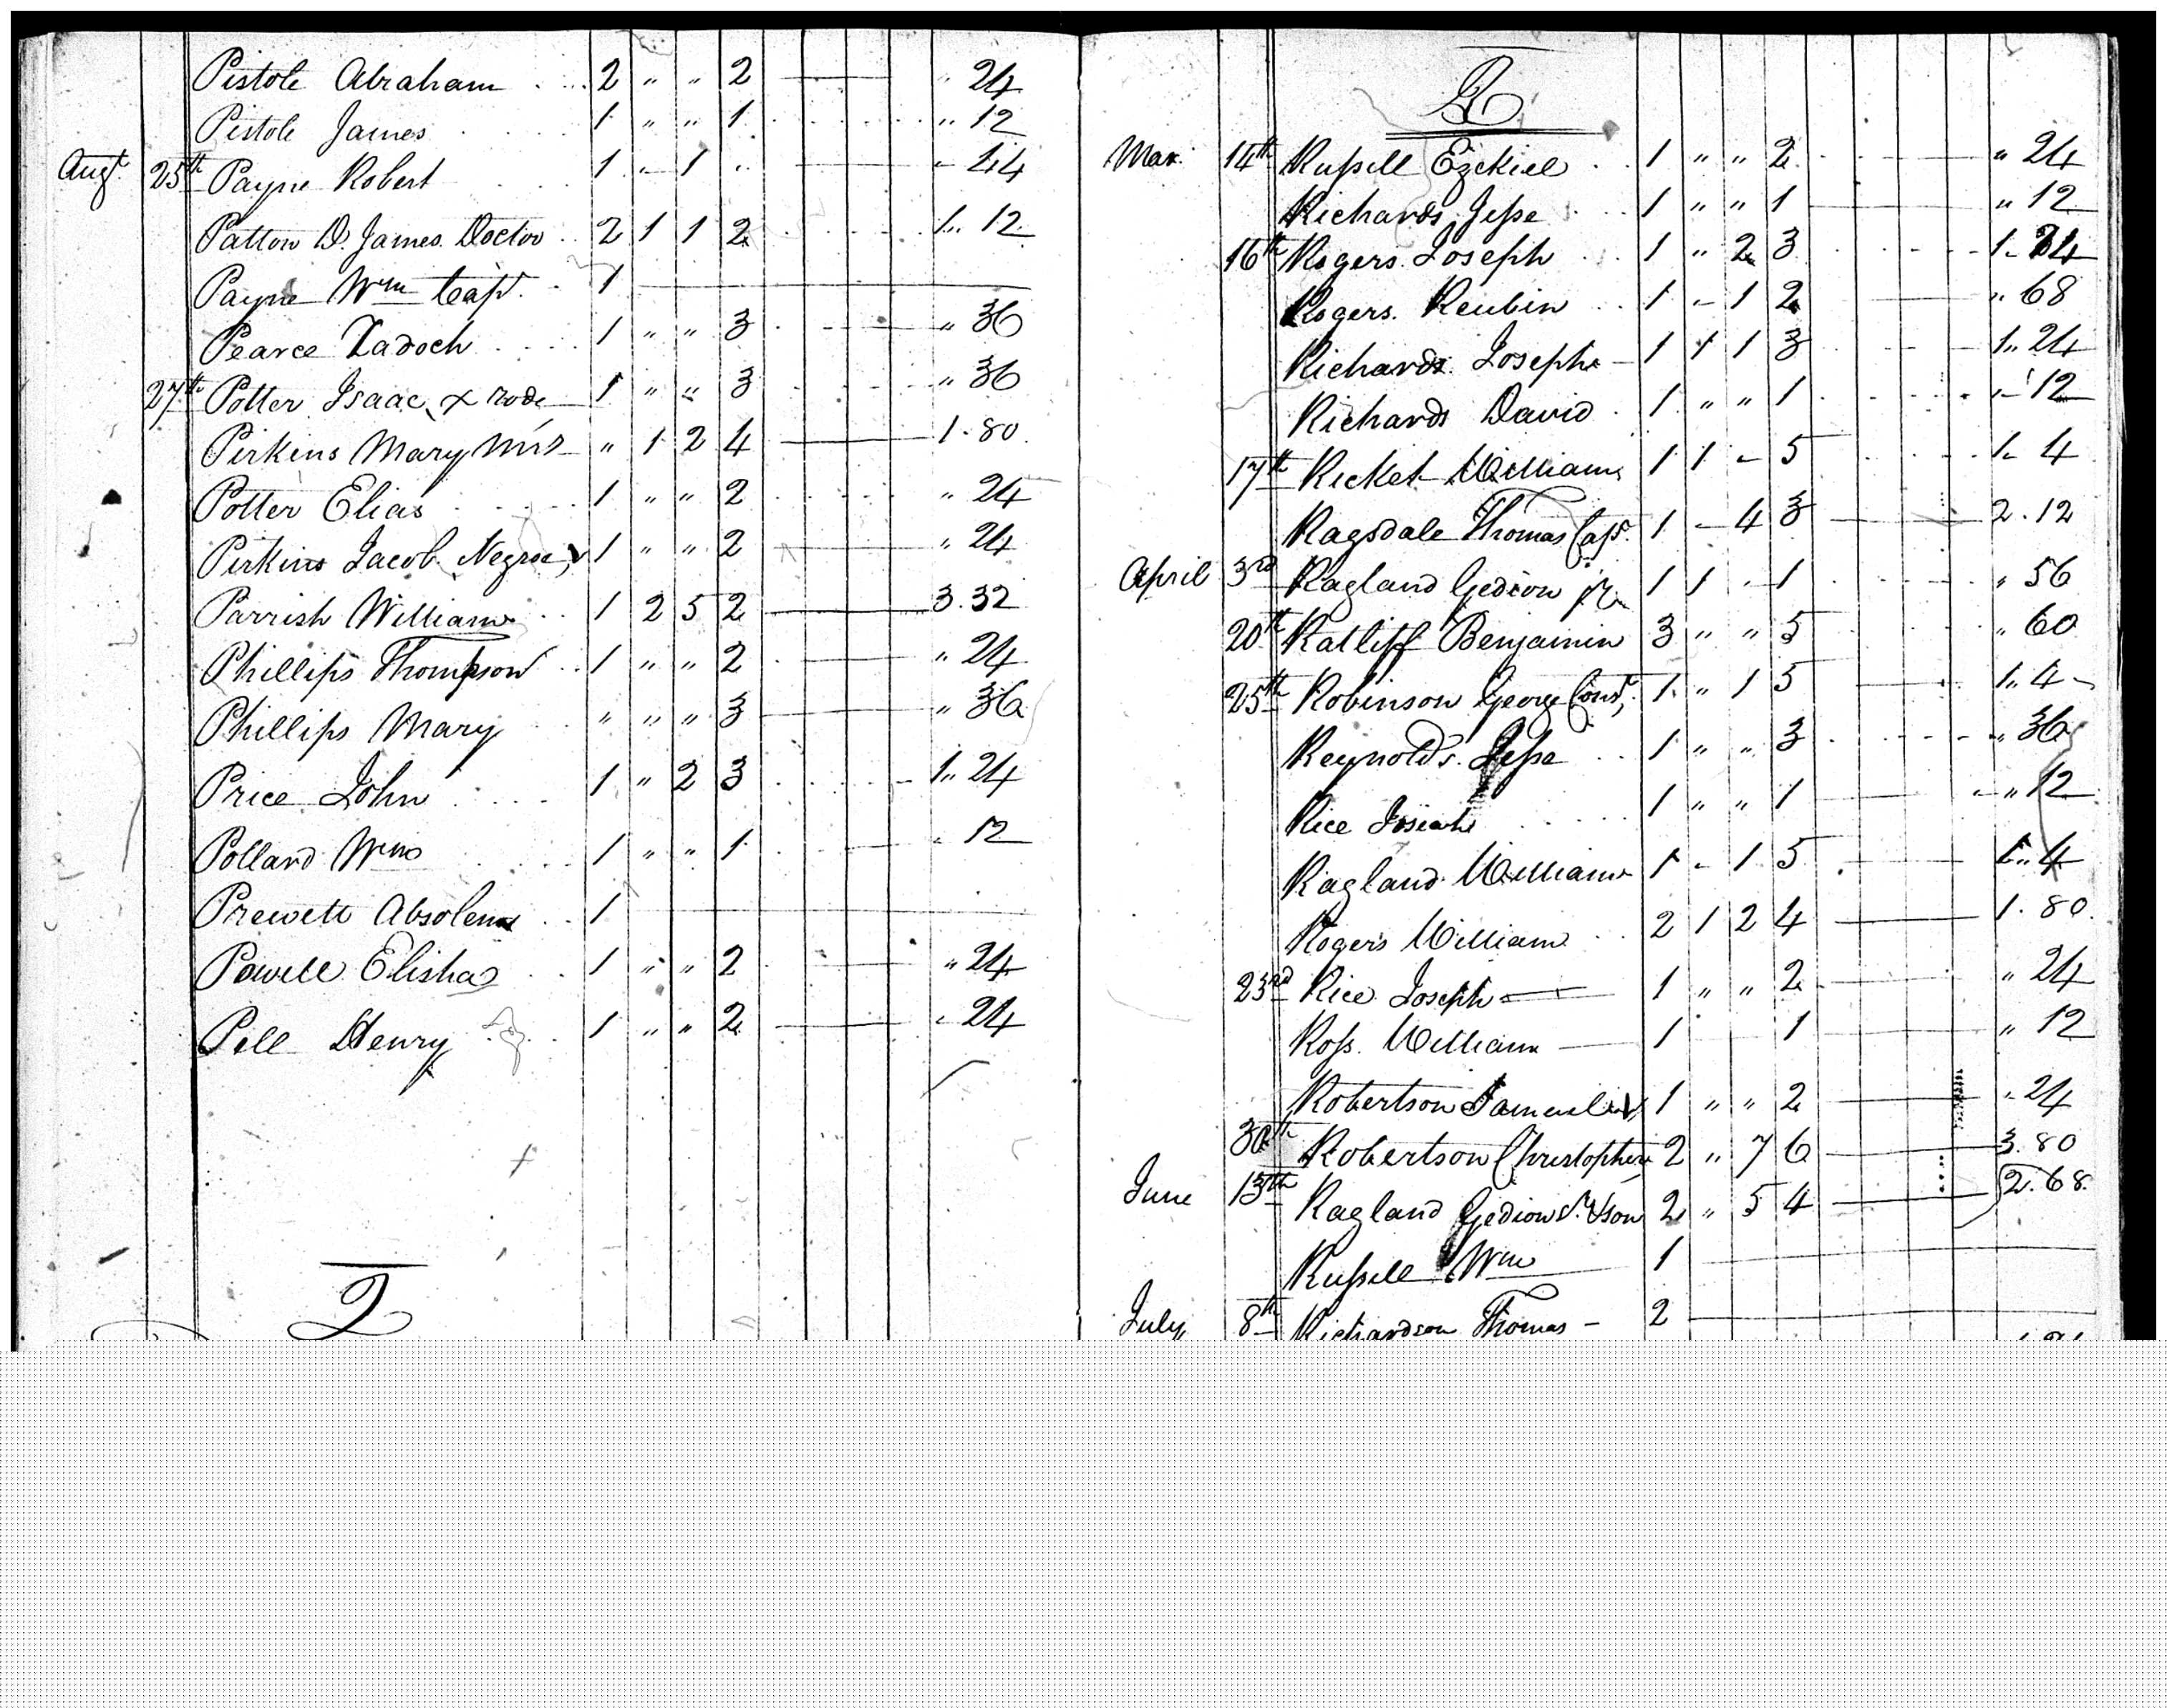 Pistole Abraham 2 " " 2 " 24
Pistole James 1 " " 1 " 12
Augt 25th Payne Robert 1 - 1 " - 44
Patton D. James Doctor 2 1 1 2 1.. 12
Payne Wm Capt. 1
Pearce Zadoch 1 " " 3 " 36
27th Potter Isaac x rode 1 " " 3 " 36
Pirkins Mary Mrs " 1 2 4 1.80
Potter Elias 1 " " 2 " 24
Pirkins Jacob Negroe 1 " " 2 " 24
Parrish William 1 2 5 2 3.32
Phillips Thompson 1 " " 2 " 24
Phillips Mary " " " 3 " 36
Price John 1 " 2 3 1.. 24
Pollard Wm 1 " " 1 - 12
Prewett Absolem 1
Powell Elisha 1 " " 2 " 24
Pell Henry 1 " " 2 - 24
Q
R
Mar. 14th Russell Ezekiel 1 " " 2 " 24
Richards Jesse 1 " " 1 " 12
16th Rogers Joseph 1 " 2 3 1- 24
Rogers Reubin 1 - 1 2 " 68
Richards Joseph 1 1 1 3 1.. 24
Richards David 1 " " 1 - 12
17th Ricket William 1 1 - 5 1- 4
Ragsdale Thomas Capt. 1 - 4 3 2.12
April 3rd Ragland Gedion jr. 1 1 - 1 " 56
20th Ratliff Benjamin 3 " " 5 " 60
25th Robinson George Const. 1 " 1 5 1.. 4
Reynolds Jesse 1 " " 3 " 36
Rice Josiah 1 " " 1 " 12
Ragland William 1 - 1 5 1.. 4
Rogers William 2 1 2 4 1.80
23rd Rice Joseph 1 " " 2 " 24
Ross William 1 1 " 12
Robertson Samuel 1 " " 2 " 24
30th Robertson Christopher 2 " 7 6 3.80
June 13th Ragland Gedion S. & son 2 " 5 4 2.68
Russell Wm 1
July 8th Richardson Thomas 2